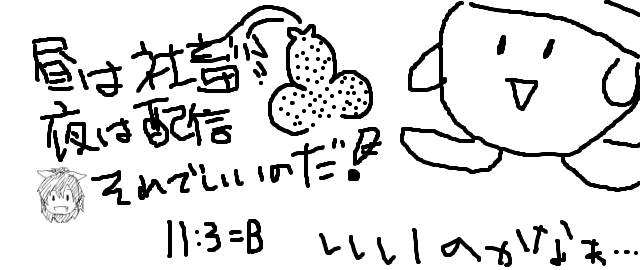 昼は社畜!!
夜は配信
それでいいのだ!
11:3=B
いいのかなぁ...